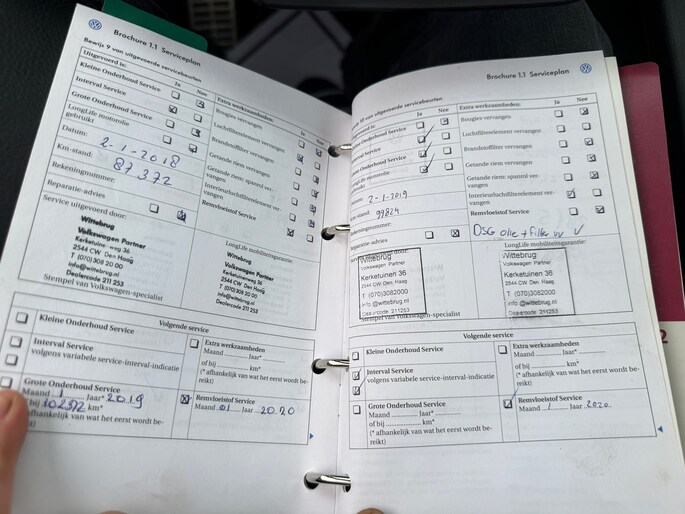 Brochure 1.1 Serviceplan
Bewijs 9 van uitgevoerde servicebeurten
Uitgevoerd te:
Ja Nee
Kleine Onderhoud Service
Interval Service
Grote Onderhoud Service
LongLife motorolie
gebruikt
Datum: 2-1-2018
Km-stand: 87372
Rekeningnummer:
Reparatie-advies
Service uitgevoerd door:
Wittebrug
Volkswagen Partner
Kerketuinen weg 36
2544 CW Den Haag
T (070)308 20 00
info@wittebrug.nl
Dealercode 211 253
Stempel van Volkswagen-specialist
Extra werkzaamheden:
Ja Nee
Bougies vervangen
Luchtfilterelement vervangen
Brandstoffilter vervangen
Getande riem vervangen
Getande riem: spanrol ver-
vangen
Interieurluchtfilterelement ver-
vangen
Remvloeistof Service
LongLife mobiliteitsgarantie:
Wittebrug
Volkswagen Partner
2544 CW Den Haag
T (070)308 20 00
info@wittebrug.nl
Dealercode 211 253
Volgende service
Kleine Onderhoud Service
Interval Service
volgens variabele service-interval-indicatie
Grote Onderhoud Service
Maand 1 Jaar* 2019
of bij 102372 km*
(* afhankelijk van wat het eerst wordt be-
reikt)
Extra werkzaamheden
Maand Jaar*
of bij km*
(* afhankelijk van wat het eerst wordt be-
reikt)
Remvloeistof Service
Maand 01 Jaar 2020
Brochure 1.1 Serviceplan
10 van uitgevoerde servicebeurten
Ja Nee
Onderhoud Service
Service
Onderhoud Service
LongLife motorolie
2-1-2019
99824
Extra werkzaamheden:
Ja Nee
Bougies vervangen
Luchtfilterelement vervangen
Brandstoffilter vervangen
Getande riem vervangen
Getande riem: spanrol ver-
vangen
Interieurluchtfilterelement ver-
vangen
Remvloeistof Service
DSG olie + Filter vv V
LongLife mobiliteitsgarantie:
Wittebrug
Volkswagen Partner
Kerketuinen 36
2544 CW Den Haag
T (070)3082000
info @wittebrug.nl
Dealercode 211253
Stempel van Volkswagen-specialist
Wittebrug
Volkswagen Partner
Kerketuinen 36
2544 CW Den Haag
T (070)3082000
info @wittebrug.nl
Dealercode 211253
Volgende service
Kleine Onderhoud Service
Interval Service
volgens variabele service-interval-indicatie
Grote Onderhoud Service
Maand Jaar*
of bij km*
(* afhankelijk van wat het eerst wordt be-
reikt)
Extra werkzaamheden
Maand Jaar*
of bij km*
(* afhankelijk van wat het eerst wordt be-
reikt)
Remvloeistof Service
Maand 1 Jaar 2020
2